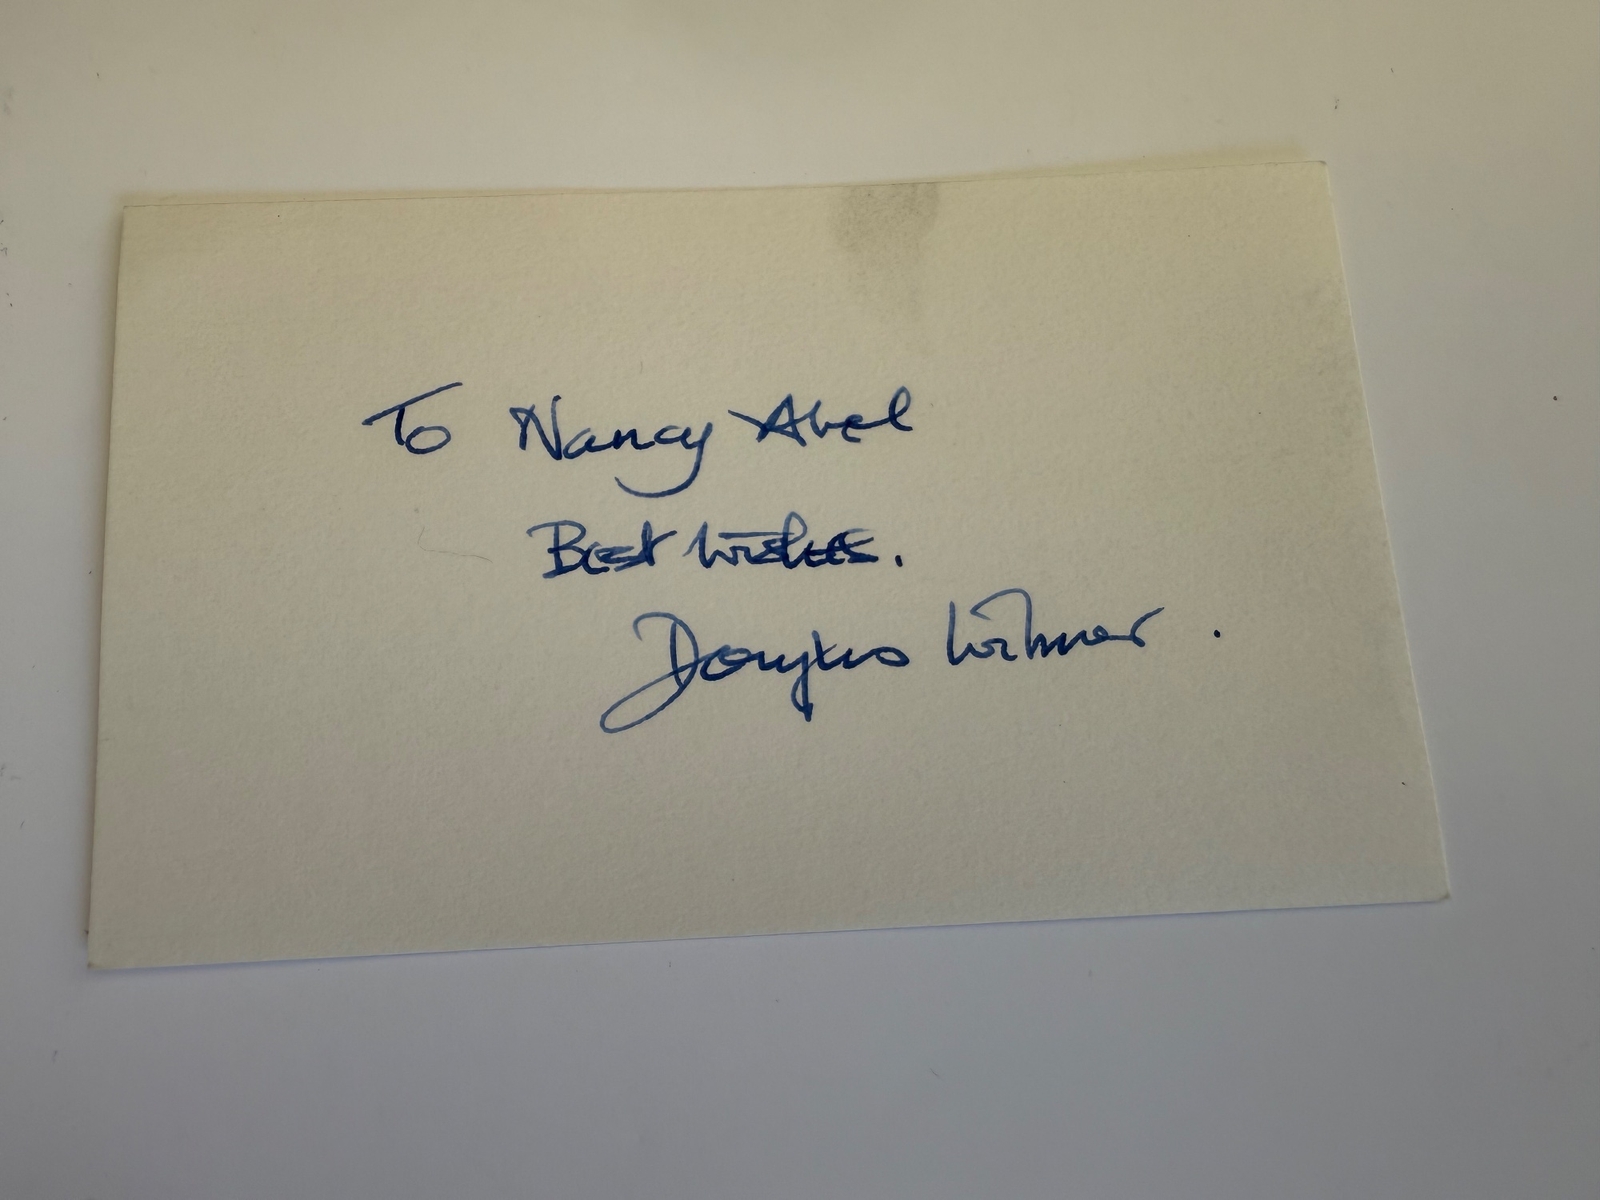 To Nancy Abel
Best Wishes.
Douglas Wilmer.